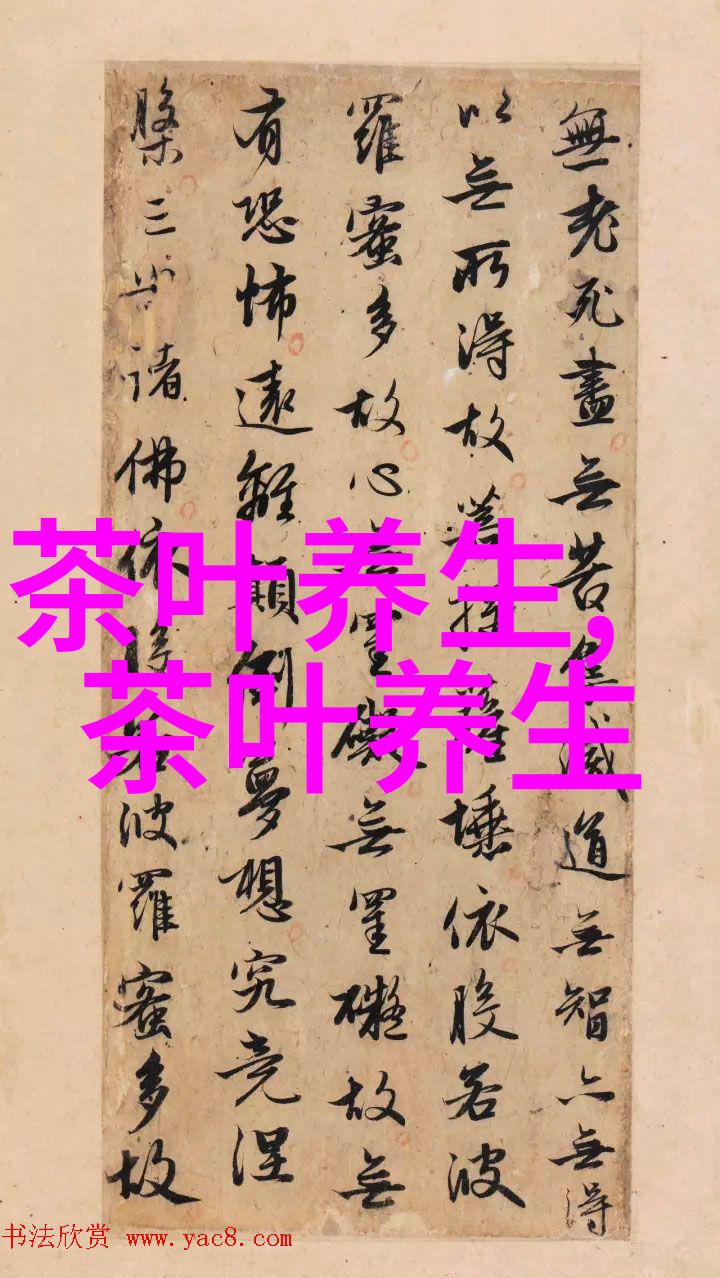 無老死盡無苦集滅道無智亦無得
以無所得故菩提薩埵依般若波
羅蜜多故心無罣礙無罣礙故無
有恐怖遠離顛倒夢想究竟涅
槃三世諸佛依般若波羅蜜多故
茶叶养生,
茶叶养生
书法欣赏 www.yac8.com